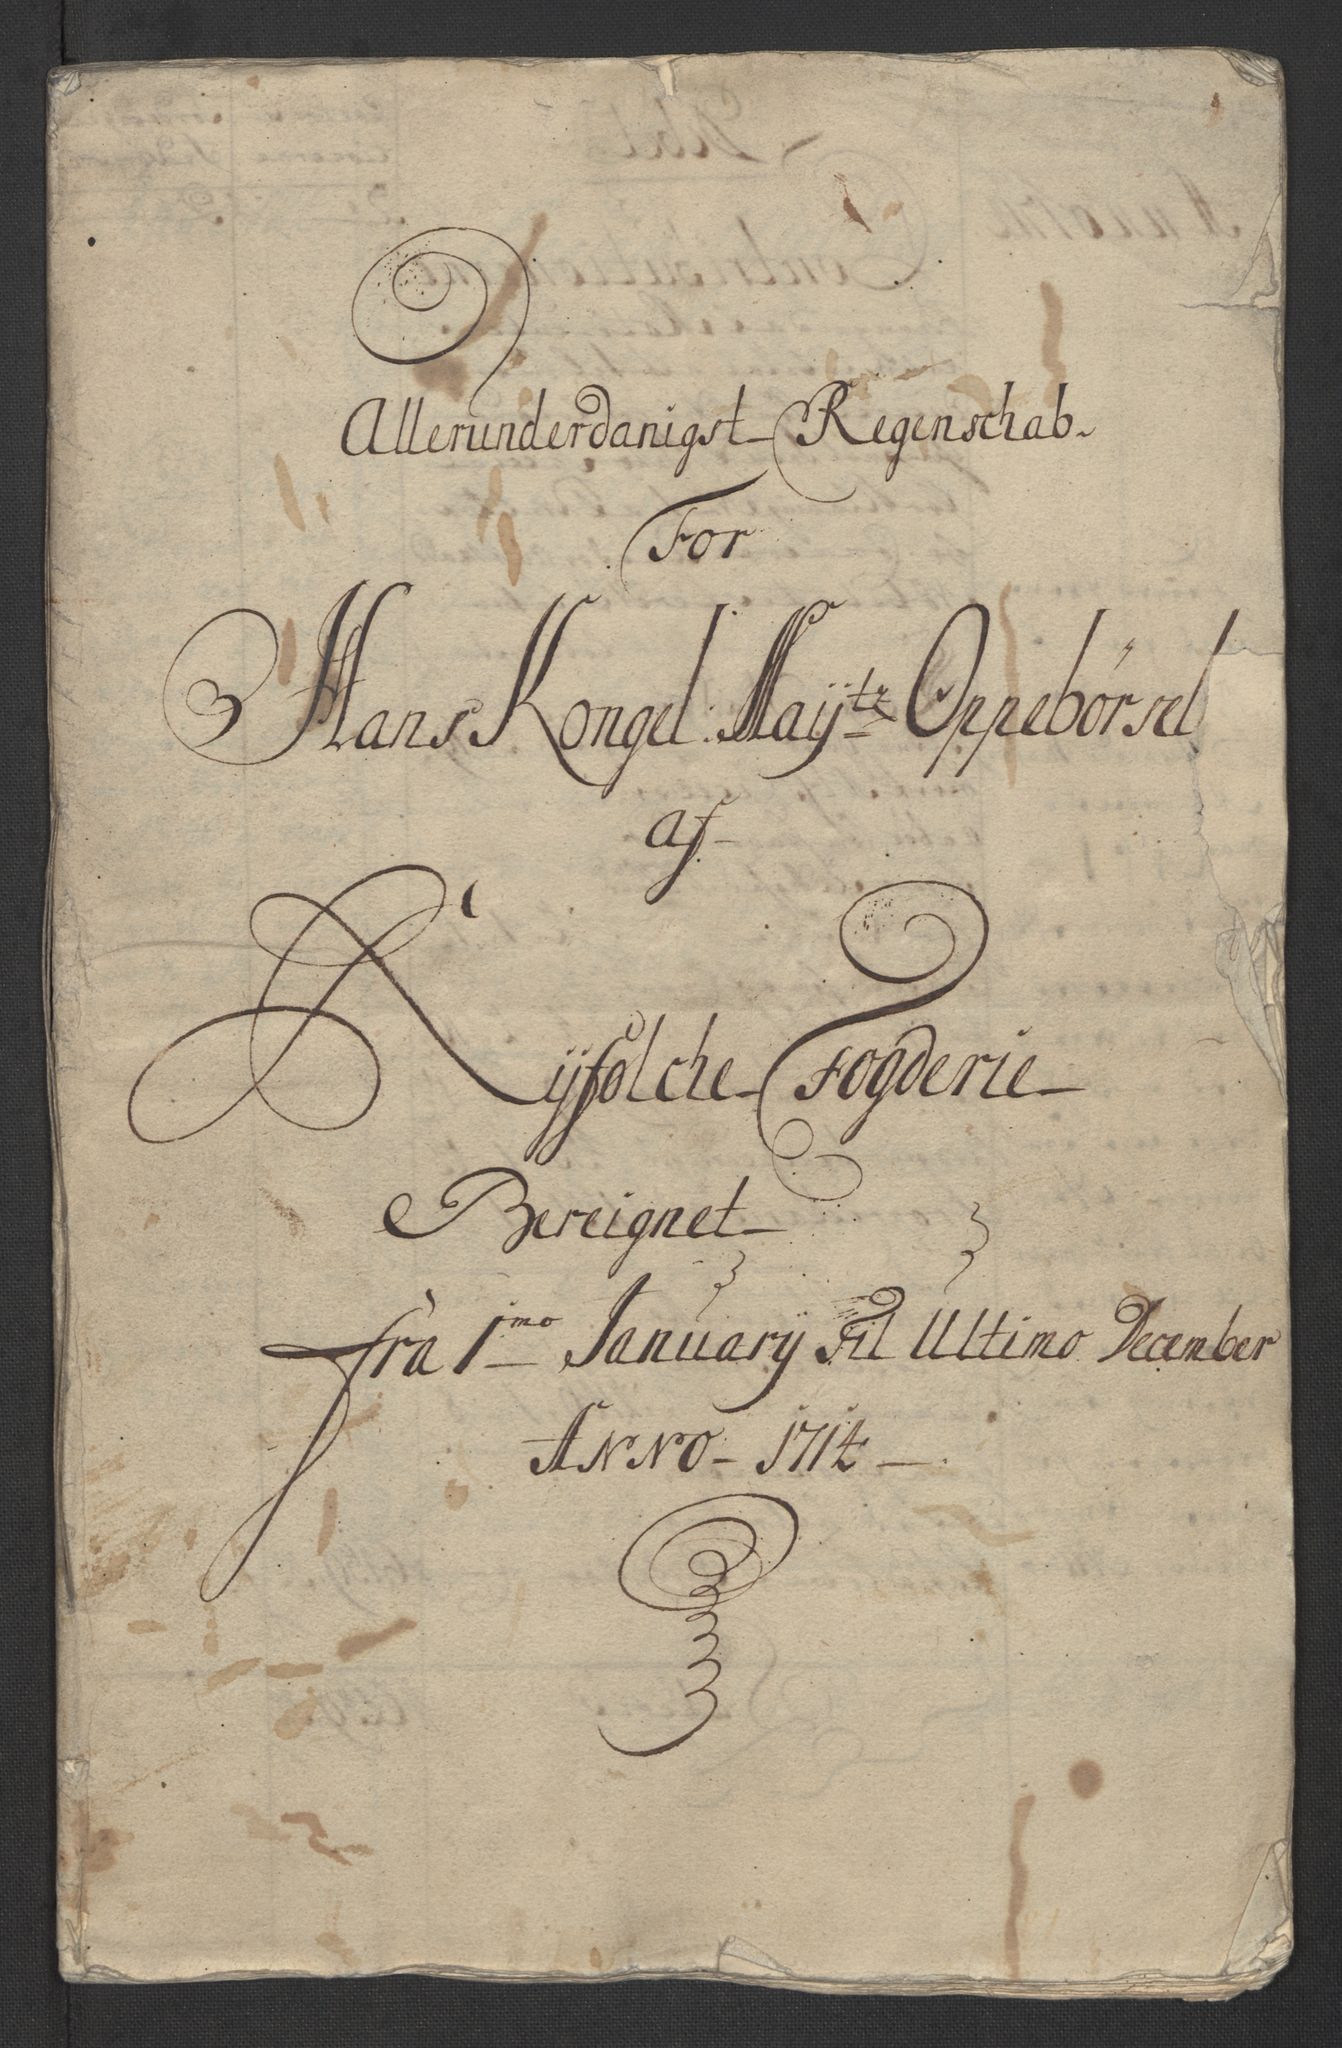 Allerunderdanigst Regenschab
For
Hans Kongel: Mayts Oppebørsel
af
Ryfölche Fogderie
Bereignet
fra 1mo January Til Ultimo December
ANNO 1714